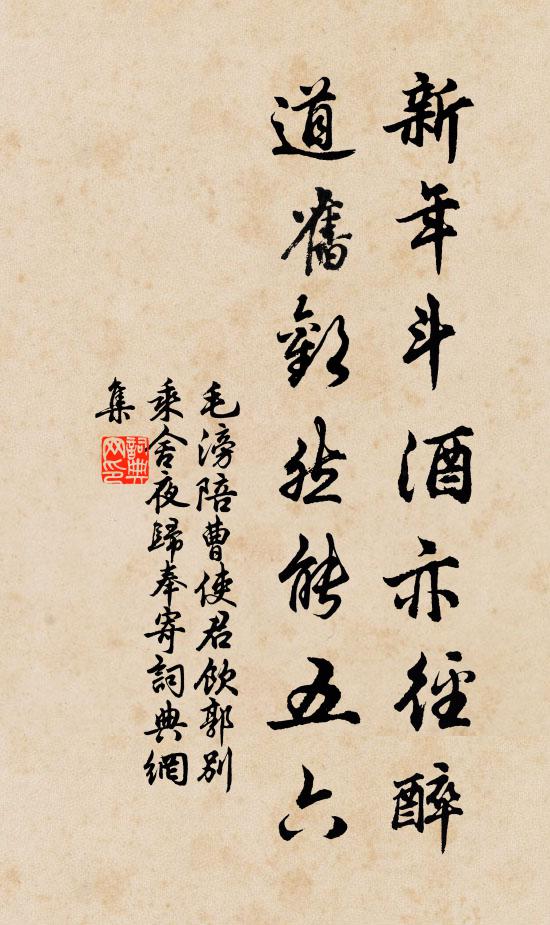 新年斗酒亦徑醉
道舊歡然能五六
毛滂陪曹使君飲郭別
乘舍夜歸奉寄詞典網
集
詞典
网印